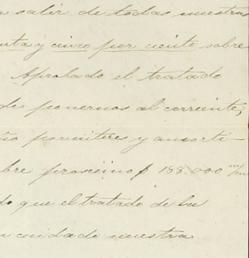 salir de todas nuestra
y cinco por ciento sobre
Aprobado el tratado
de ponernos al corriente,
permitree y amorti-
bre proscimo $ 188.000 m/n
do que el tratado de la
cuidado nuestra